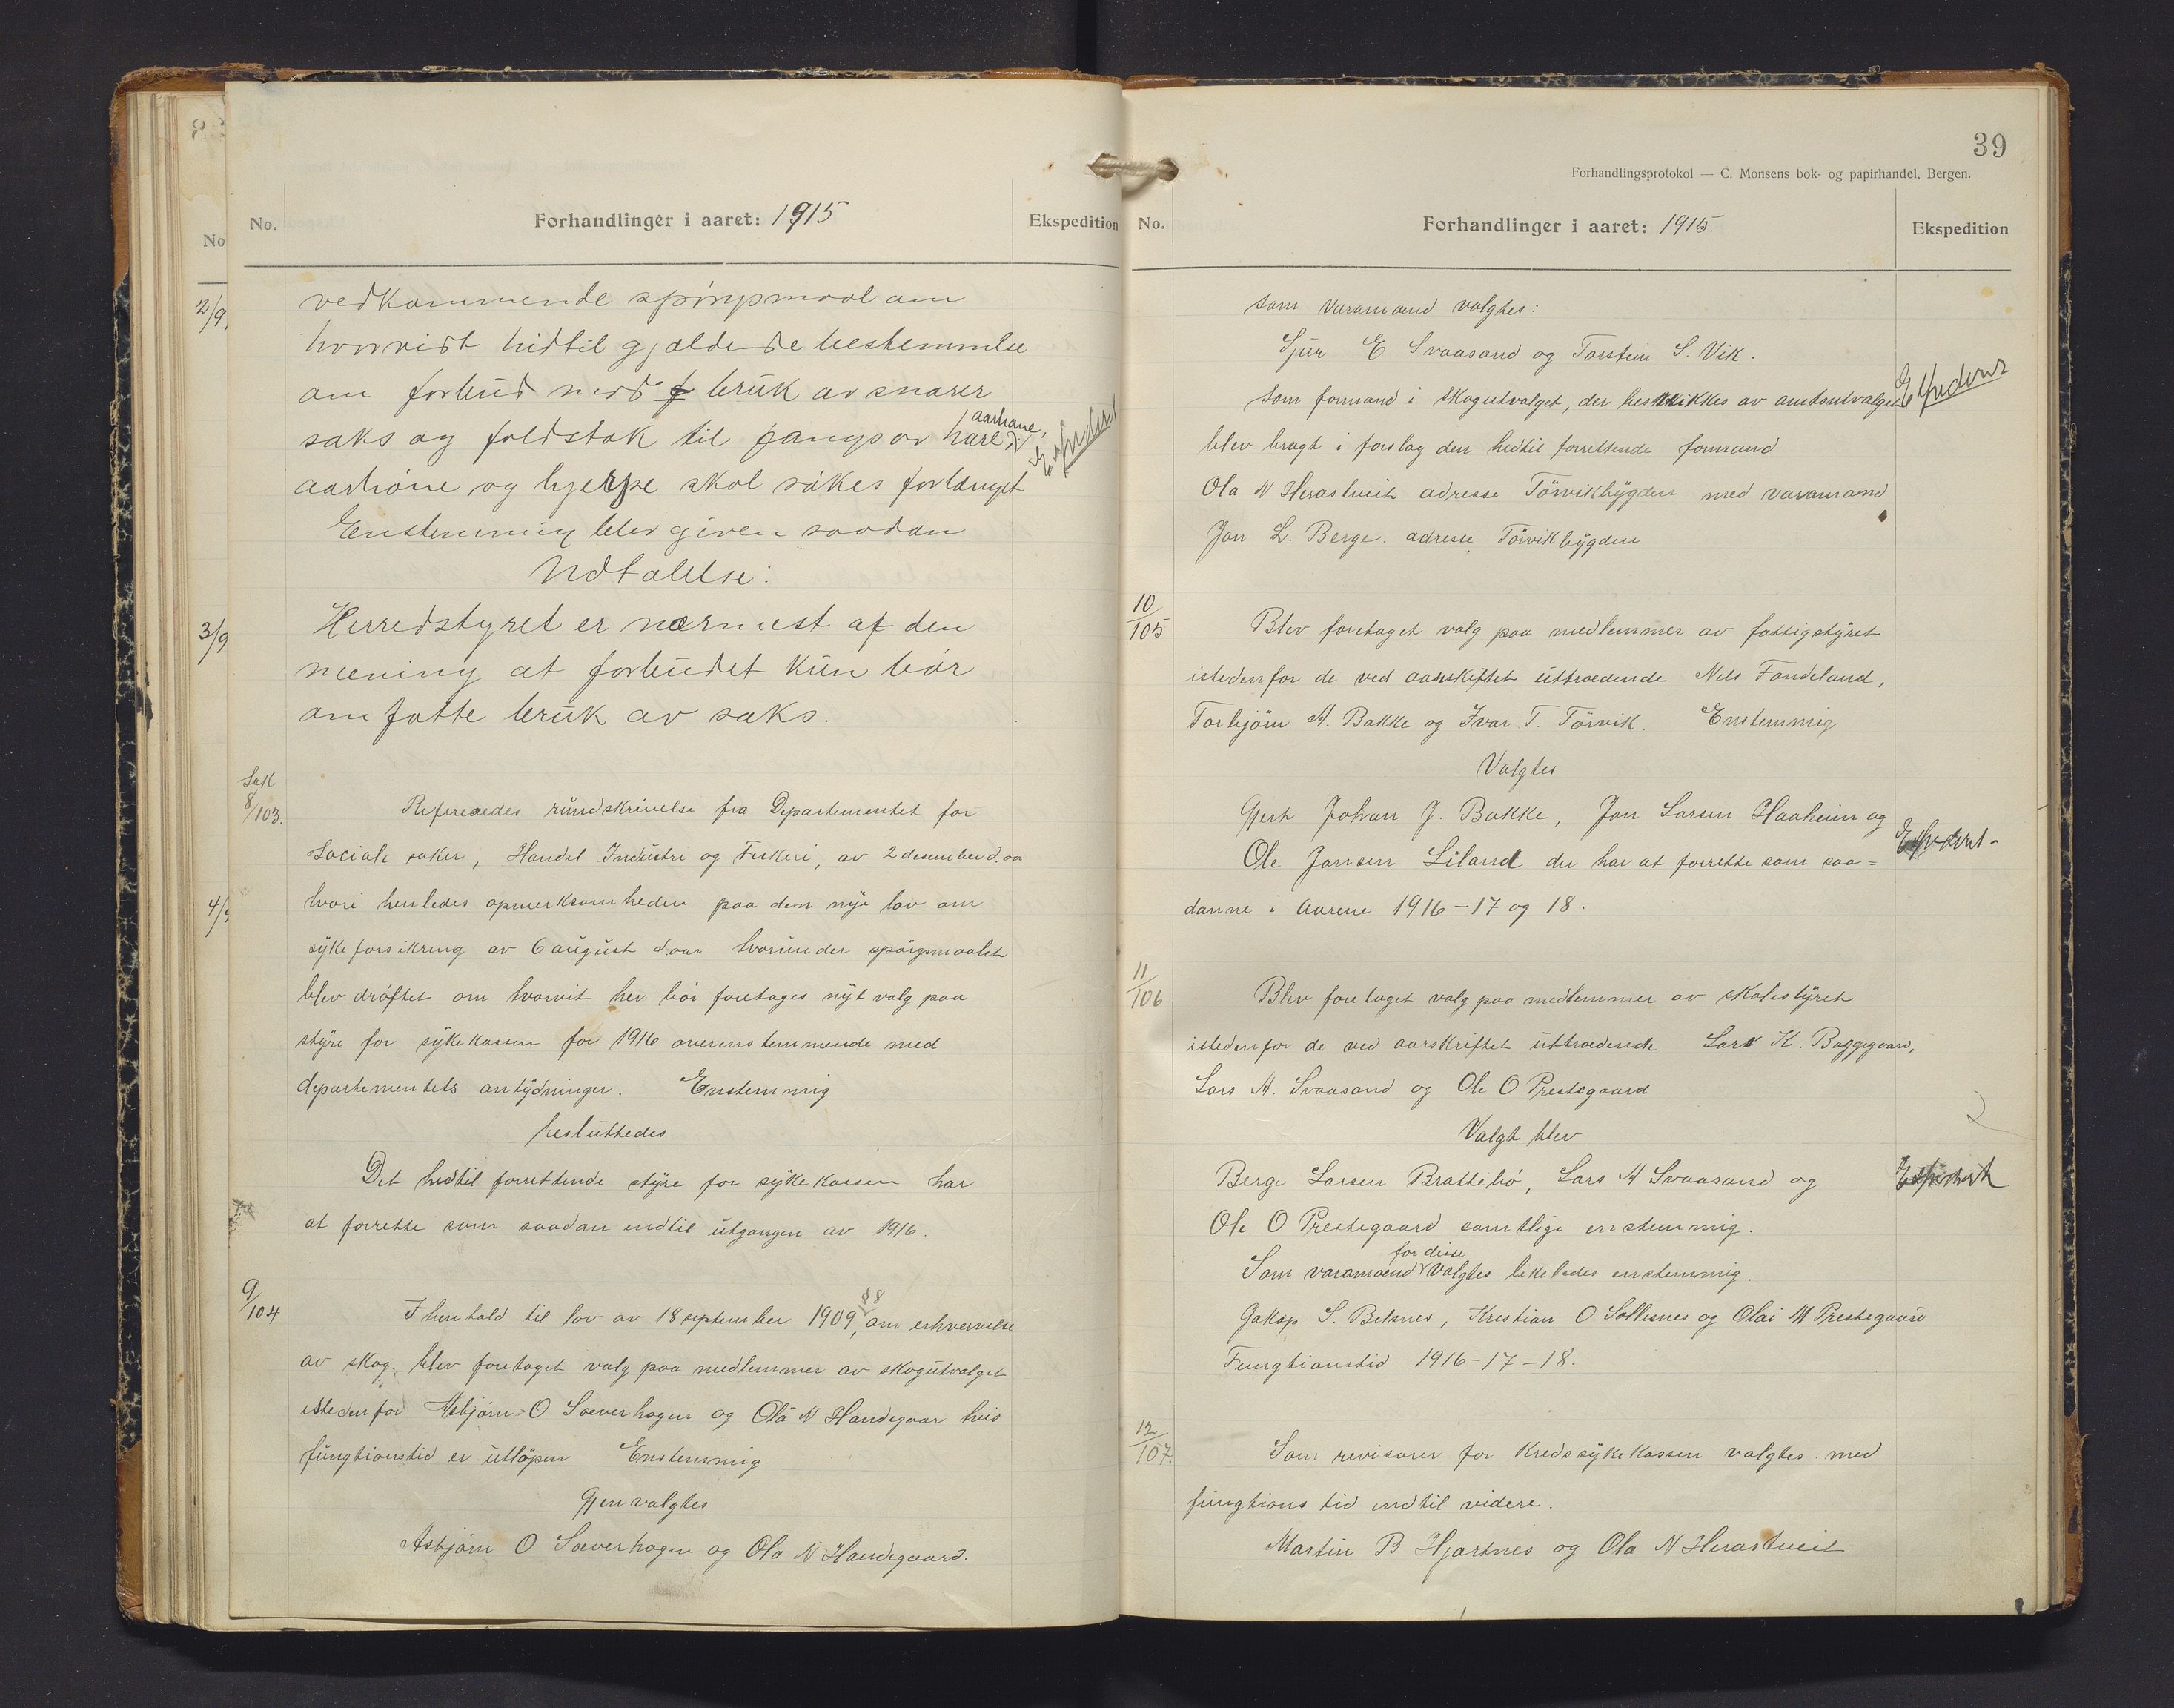 No.
Forhandlinger i aaret: 1915
Ekspedition
vedkommende spörgsmaal om
hvorvidt hidtil gjældende bestemmelse
om forbud mod bruk av snarer
saks og foldstok til fangst av hare aarhane,
aarhöne og hjerpe skal søkes forlænget
Ekspederet
Enstemmig blev given saadan
Udtalelse:
Herredstyret er nærmest af den
mening at forbudet kun bör
omfatte bruk av saks.
Sak
8/103.
Refereredes rundskrivelse fra Departementet for
Sociale saker, Handel Industri og Fiskeri, av 2 desember d. aa
hvori henledes opmerksomheden paa den nye lov om
sykeforsikring av 6 august d. aar hvorunder spörgsmaalet
blev dröftet om hvorvit her bör foretages nyt valg paa
styre for sykekassen for 1916 overenstemmende med
departementets antydninger. Enstemmig
besluttedes
Det hidtil forrettende styre for sykekassen har
at forrette som saadan indtil utgangen av 1916.
9/104
I henhold til lov av 18 september 1909, § 8 om erhvervelse
av skog. blev foretaget valg paa medlemmer av skogutvalget
istedenfor Asbjörn O Sæverhagen og Ola N Handegaar hvis
fungtionstid er utlöpen Enstemmig
Gjenvalgtes
Asbjörn O Sæverhagen og Ola N Handegaard.
39
Forhandlingsprotokol — C. Monsens bok- og papirhandel, Bergen.
No.
Forhandlinger i aaret: 1915.
Ekspedition
Som varamænd valgtes:
Sjur E Svaasand og Torstein S. Vik.
Som formand i Skogutvalget, der beskikkes av amtsutvalget
Ekspederet
blev bragt i forslag den hidtil forrettende formand
Ola N Herastveit adresse Törvikbygden med varamand
Jon L. Berge. adresse Törvikbygden
10/105
Blev foretaget valg paa medlemmer av fattigstyret
istedenfor de ved aarskiftet uttrædende Nels Fondeland,
Torbjörn A. Bakke og Ivar T. Törvik. Enstemmig
Valgtes
Gjert Johan J. Bakke, Jon Larsen Haaheim og
Ole Jansen Liland der har at forrette som saa=
Ekspederet
danne i Aarene 1916-17 og 18.
11/106
Blev foretaget valg paa medlemmer av skolestyret
istedenfor de ved aarskriftet uttrædende Lars K. Baggegaard,
Lars A. Svaasand og Ole O Prestegaard
Valgt blev
Berge Larsen Brattebö, Lars A Svaasand og
Ekspederet
Ole O Prestegaard samtlige enstemmig.
Som varamænd for disse valgtes likeledes enstemmig.
Jakop S. Botsnes, Kristian O Sollesnes og Olai M Prestegaard
Fungtionstid 1916-17-18.
12/107.
Som revisorer for Kredssykekassen valgtes med
fungtionstid indtil videre.
Martin B Hjartnes og Ola N Herastveit
2/9
3/9
No